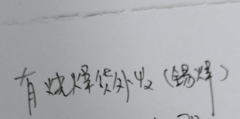 有烧焊货外发（锡焊）